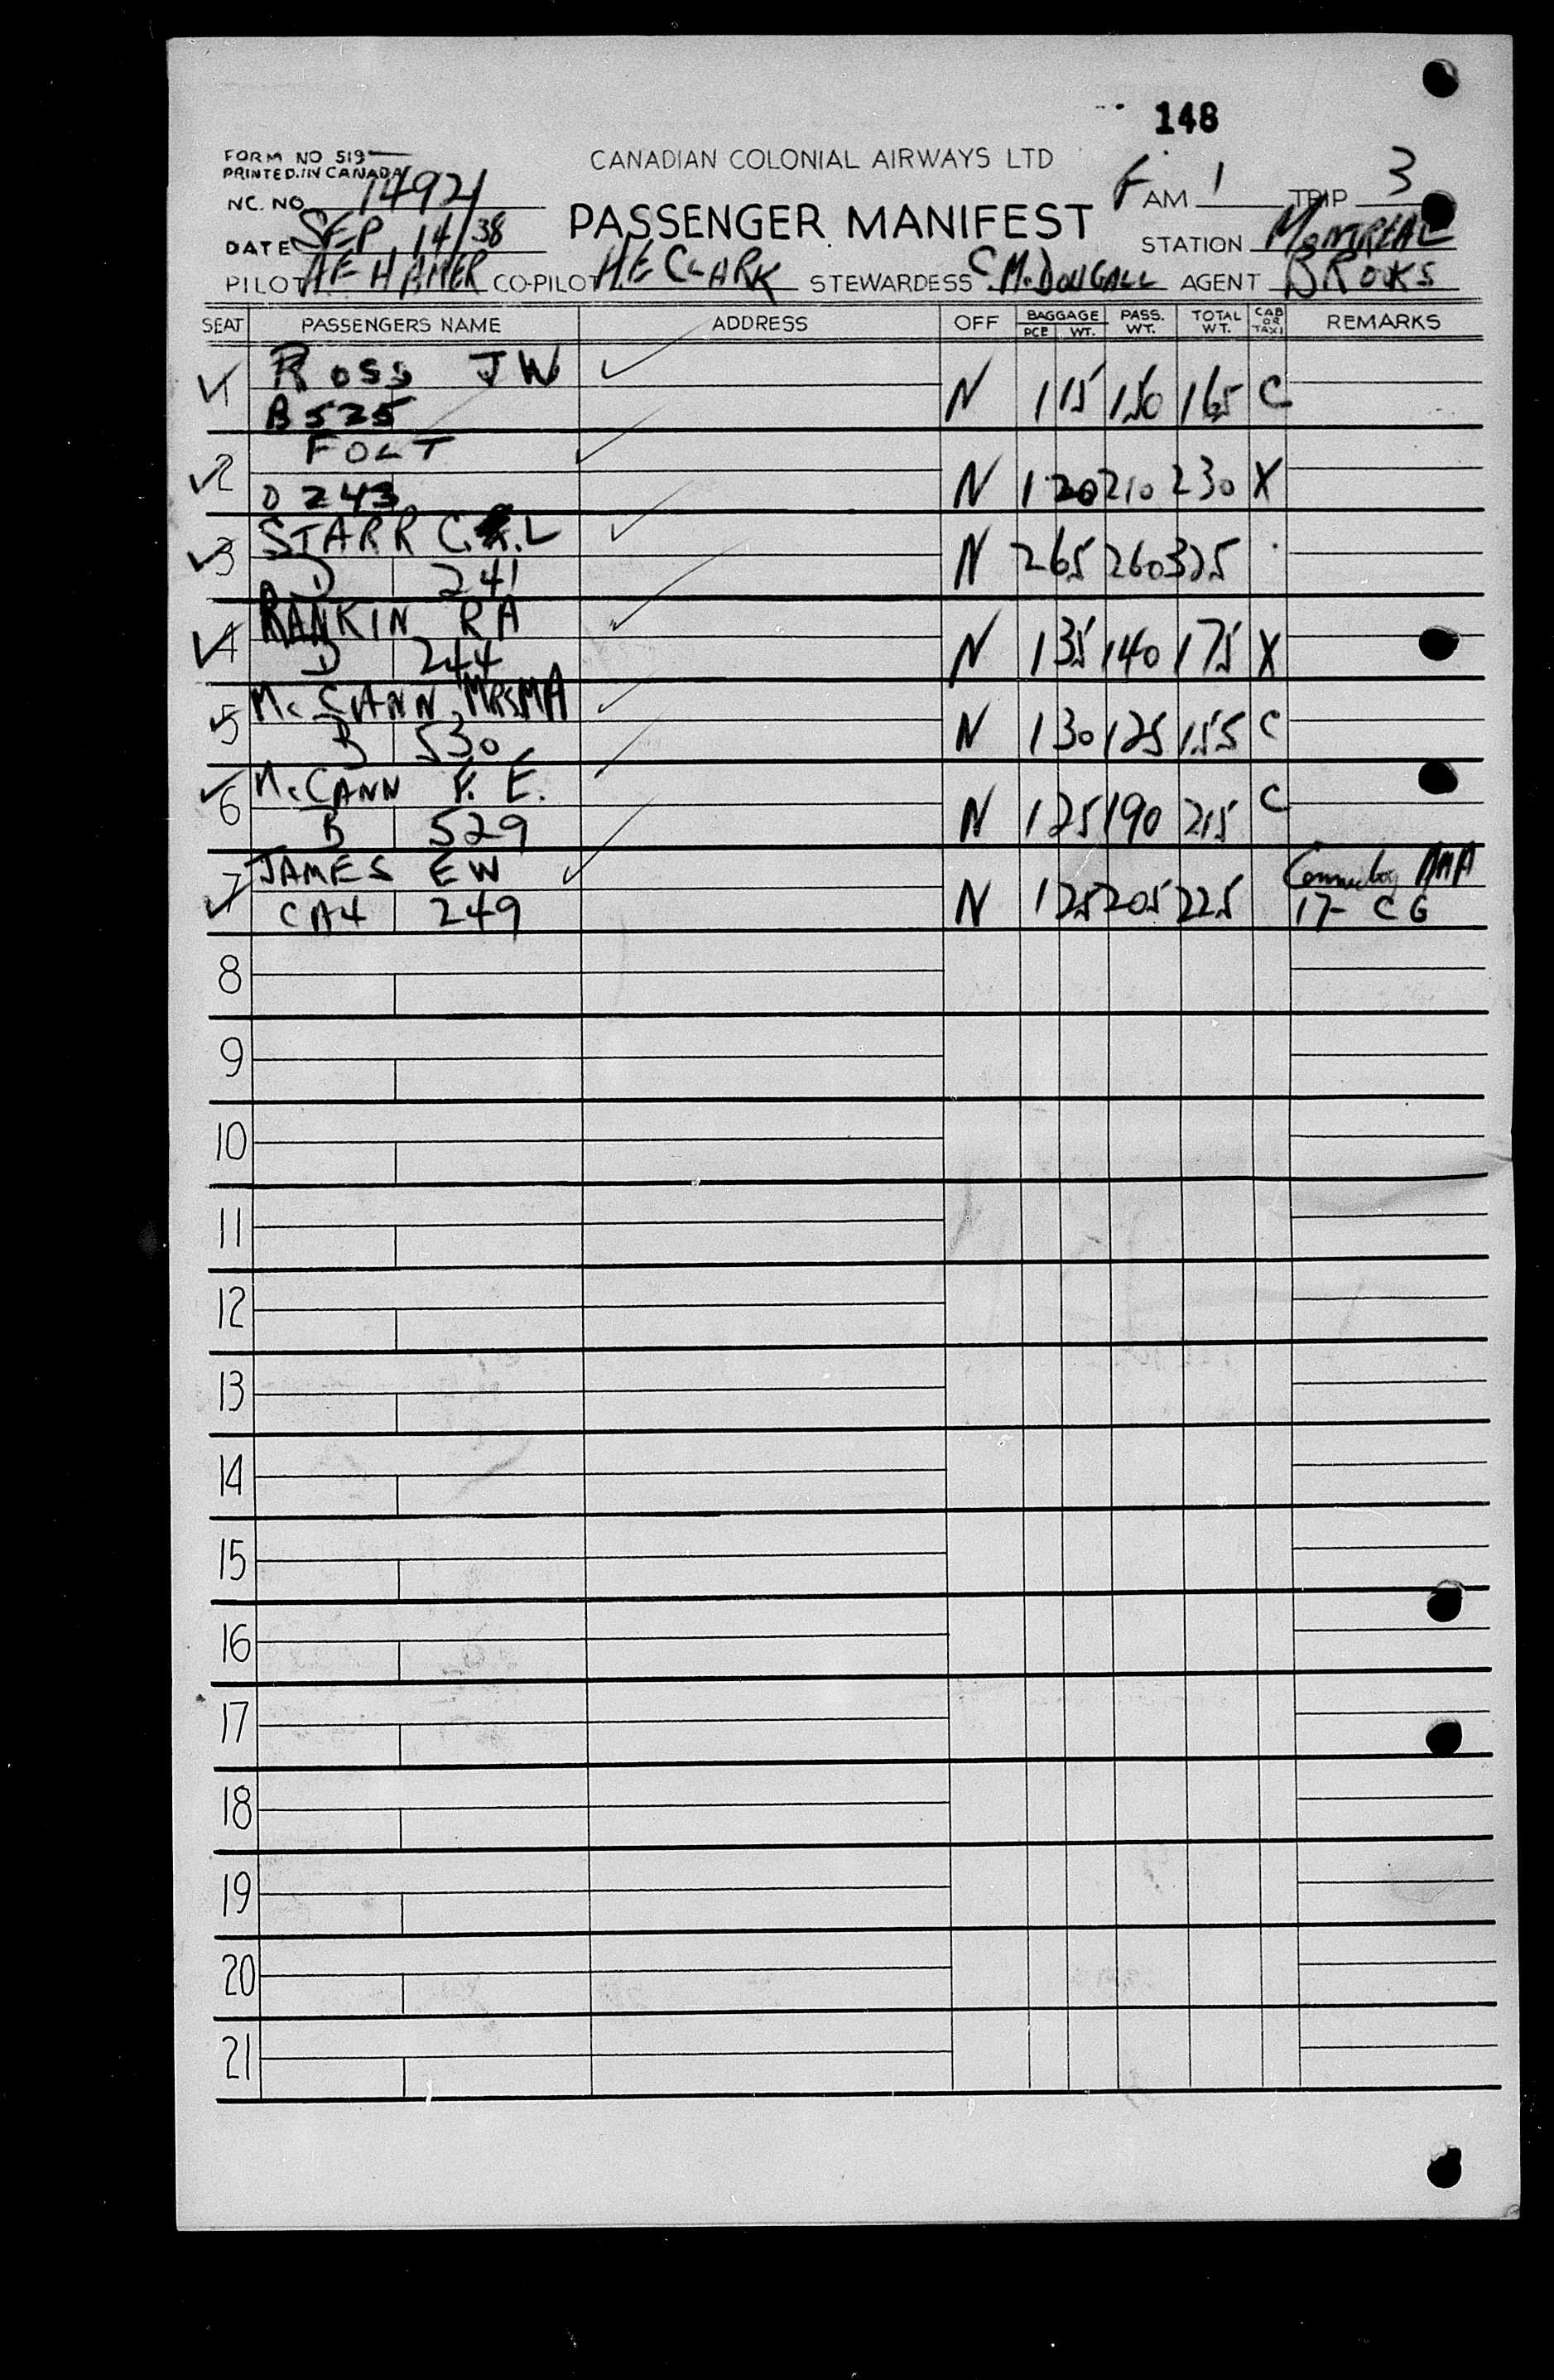 148
FORM NO 519
PRINTED.IN CANADA
CANADIAN COLONIAL AIRWAYS LTD
NC. NO 14921
F AM 1 TRIP 3
PASSENGER MANIFEST
DATE SEP 14/38
STATION MONTREAL
PILOT AE HAMER CO-PILOT HE CLARK STEWARDESS C McDOUGALL AGENT BROOKS
SEAT PASSENGERS NAME ADDRESS OFF BAGGAGE PCE WT. PASS. WT. TOTAL WT. CAB OR TAXI REMARKS
1 ROSS JW ✓
B525 N 1 15 150 165 C
2 FOLT ✓
D 243 N 1 20 210 230 X
3 STARR C. L ✓
D 241 N 2 65 260 325
4 RANKIN RA ✓
D 244 N 1 35 140 175 X
5 McCANN MRS MA ✓
B 530 N 1 30 125 155 C
6 McCANN F. E. ✓
B 529 N 1 25 190 215 C
7 JAMES EW ✓ Connecting AMA
CA4 249 N 1 25 205 225 17- CG
8
9
10
11
12
13
14
15
16
17
18
19
20
21